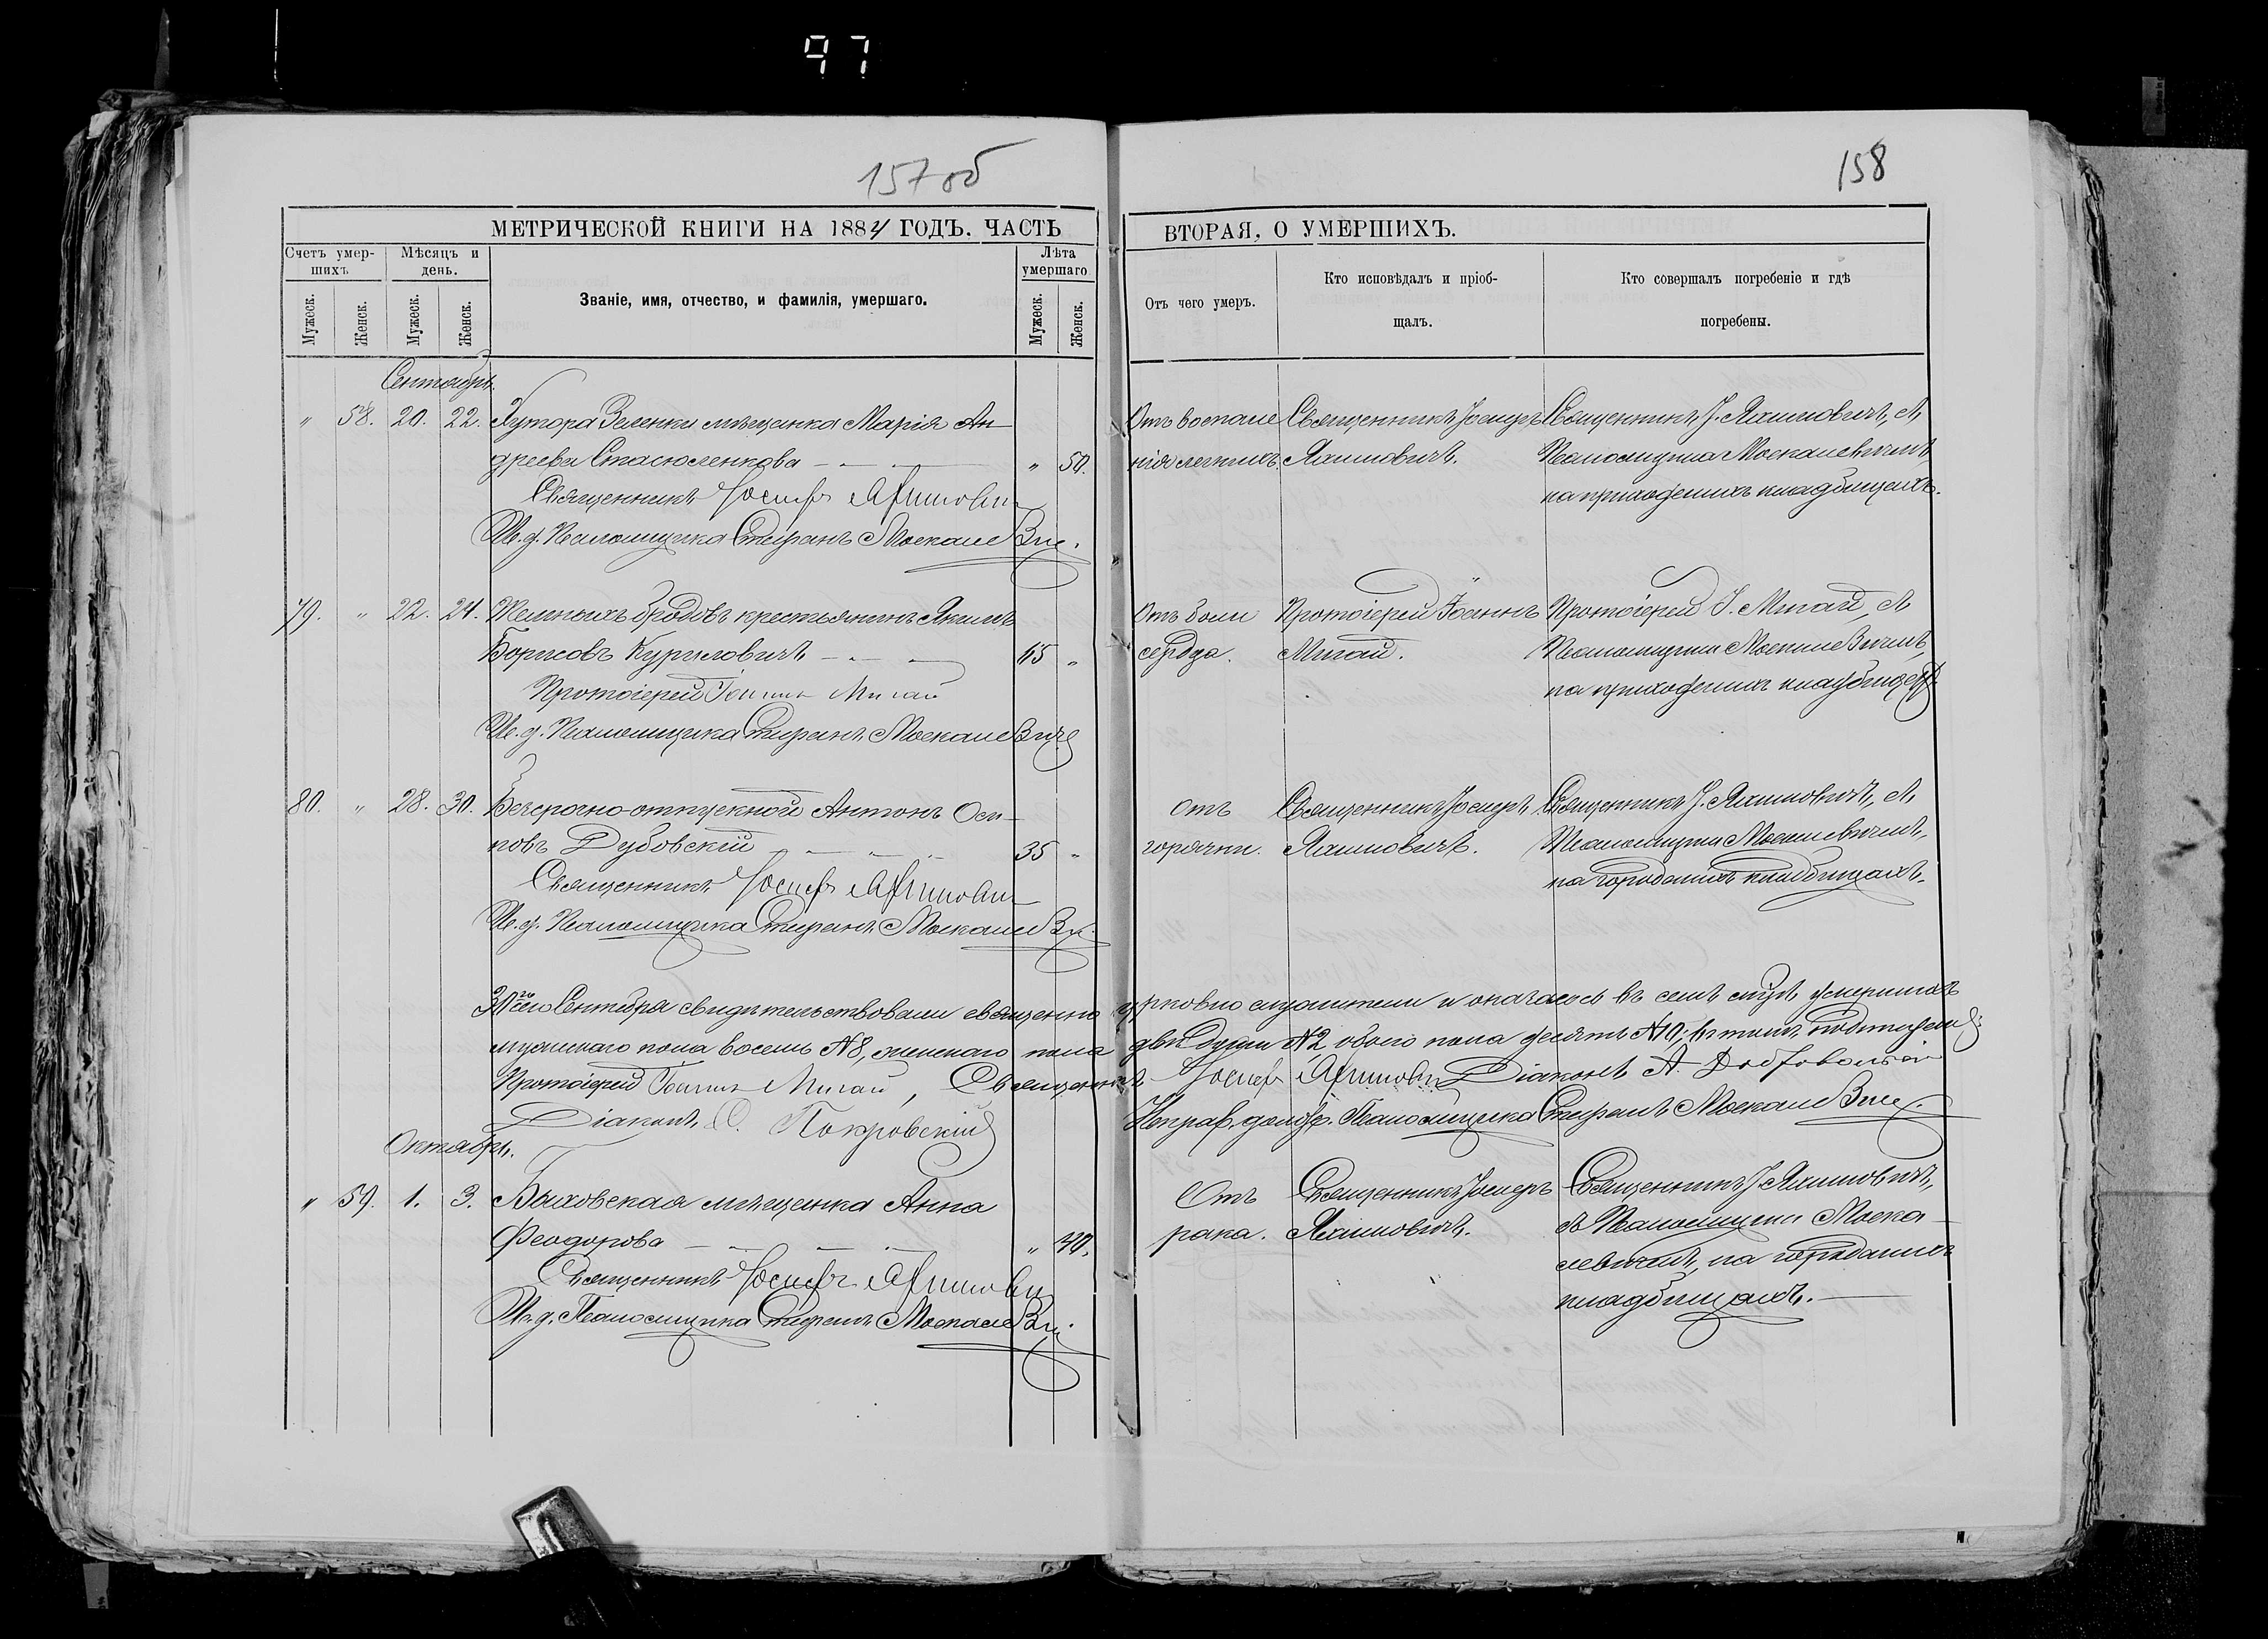 97
157 об
158
МЕТРИЧЕСКОЙ КНИГИ НА 1884 ГОДЪ. ЧАСТЬ
ВТОРАЯ, О УМЕРШИХЪ.
Счетъ умер-
шихъ
Мѣсяцъ и
день.
Званіе, имя, отчество, и фамилія, умершаго.
Лѣта
умершаго
Мужеск.
Женск.
Мужеск.
Женск.
Мужеск.
Женск.
Отъ чего умеръ.
Кто исповѣдалъ и пріоб-
щалъ.
Кто совершалъ погребеніе и гдѣ
погребены.
Сентябрь.
" 58. 20. 22. Хутора Зеленки мѣщанка Марія Ан-
дреева Стасюленкова " 50.
Священникъ Іосифъ Яхимович
И. д. Псаломщика Стефанъ Москалевич.
Отъ воспале
нія легкихъ.
Священникъ Іосифъ
Яхимовичъ.
Священникъ І. Яхимовичъ, съ
Псаломщикомъ Москалевичемъ,
на приходскихъ кладбищахъ.
79. " 22. 24. бродовъ крестьянинъ
Борисовъ Куриловичъ 45 "
Протоіерей Іоаннъ Мигай
И. д. Псаломщика Стефанъ Москалевичъ
Отъ боли
сердца.
Протоіерей Іоаннъ
Мигай.
Протоіерей І. Мигай, съ
Псаломщикомъ Москалевичемъ,
на приходскихъ кладбищахъ.
80. " 28. 30. Безсрочно-отпускной Антонъ Оси-
повъ Дубовскій 35 "
Священникъ Іосифъ Яхимович
И. д. Псаломщика Стефанъ Москалевич.
Отъ
горячки.
Священникъ Іосифъ
Яхимовичъ.
Священникъ І. Яхимовичъ, съ
Псаломщикомъ Москалевичемъ,
на городскихъ кладбищахъ.
30го сего Сентября свидѣтельствовали священно церковно служители и оказалось въ семъ мѣс. умершихъ
мужескаго пола восемь №8, женскаго пола двѣ души №2 обоего пола десять №10; въ томъ подписуемся:
Протоіерей Іоаннъ Мигай, Священникъ Іосифъ Яхимович Діаконъ А. Добровольскій
Діаконъ С. Покровскій Исправ. долж. Псаломщика Стефанъ Москалевич.
Октябрь.
" 59. 1. 3. Быховская мѣщанка Анна
Феодорова " 40.
Священникъ Іосифъ Яхимович
И. д. Псаломщика Стефанъ Москалевич.
Отъ
рака.
Священникъ Іосифъ
Яхимовичъ.
Священникъ І. Яхимовичъ,
съ Псаломщикомъ Моска-
левичемъ, на городскихъ
кладбищахъ.